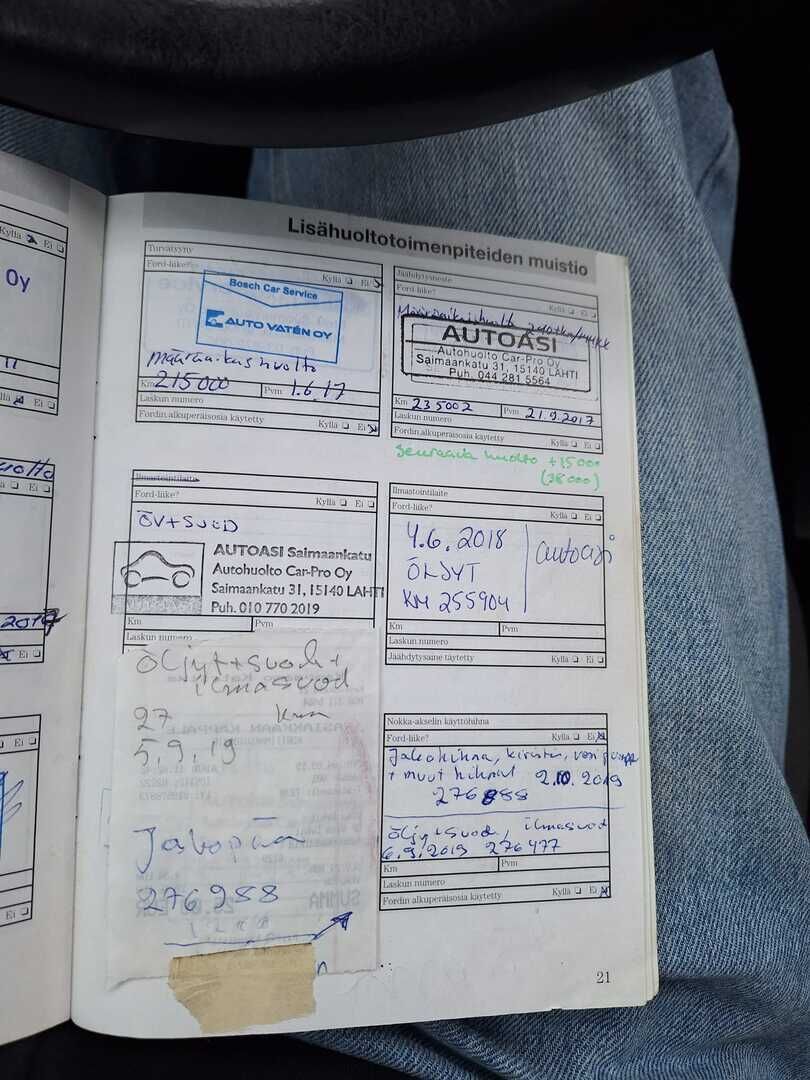 Kyllä Ei
Oy
11
Ei
Kyllä Ei
2017
Ei
Ei
Ei
Lisähuoltotoimenpiteiden muistio
Turvatyyny
Ford-liike? Kyllä Ei
Bosch Car Service
AUTO VATÉN OY
määräaikashuolto
Km 215000 Pvm 1.6.17
Laskun numero
Fordin alkuperäisosia käytetty Kyllä Ei
Jäähdytysneste
Ford-liike? Kyllä Ei
Määräaikaishuolto
AUTOASI
Autohuolto Car-Pro Oy
Saimaankatu 31, 15140 LAHTI
Puh. 044 281 5564
Km 235002 Pvm 21.9.2017
Laskun numero
Fordin alkuperäisosia käytetty Kyllä Ei
Seuraava huolto +15000
Ilmastointilaite
Ford-liike? Kyllä Ei
ÖV+SUOD
AUTOASI Saimaankatu
Autohuolto Car-Pro Oy
Saimaankatu 31, 15140 LAHTI
Puh. 010 770 2019
Km Pvm
Laskun numero
Ilmastointilaite
Ford-liike? Kyllä Ei
4.6.2018 autoasi
ÖLJYT
KM 255904
Km Pvm
Laskun numero
Jäähdytysaine täytetty Kyllä Ei
Öljyt+suod+
ilmasuod
27 km
5.9.19
Jakopään
276988
Nokka-akselin käyttöhihna
Ford-liike? Kyllä Ei
Jakohihna, kiristin, vesipumppu
+ muut hihnat 2.10.2019
Öljyt+suod, ilmasuod
6.9.2019 276477
Km Pvm
Laskun numero
Fordin alkuperäisosia käytetty Kyllä Ei
21